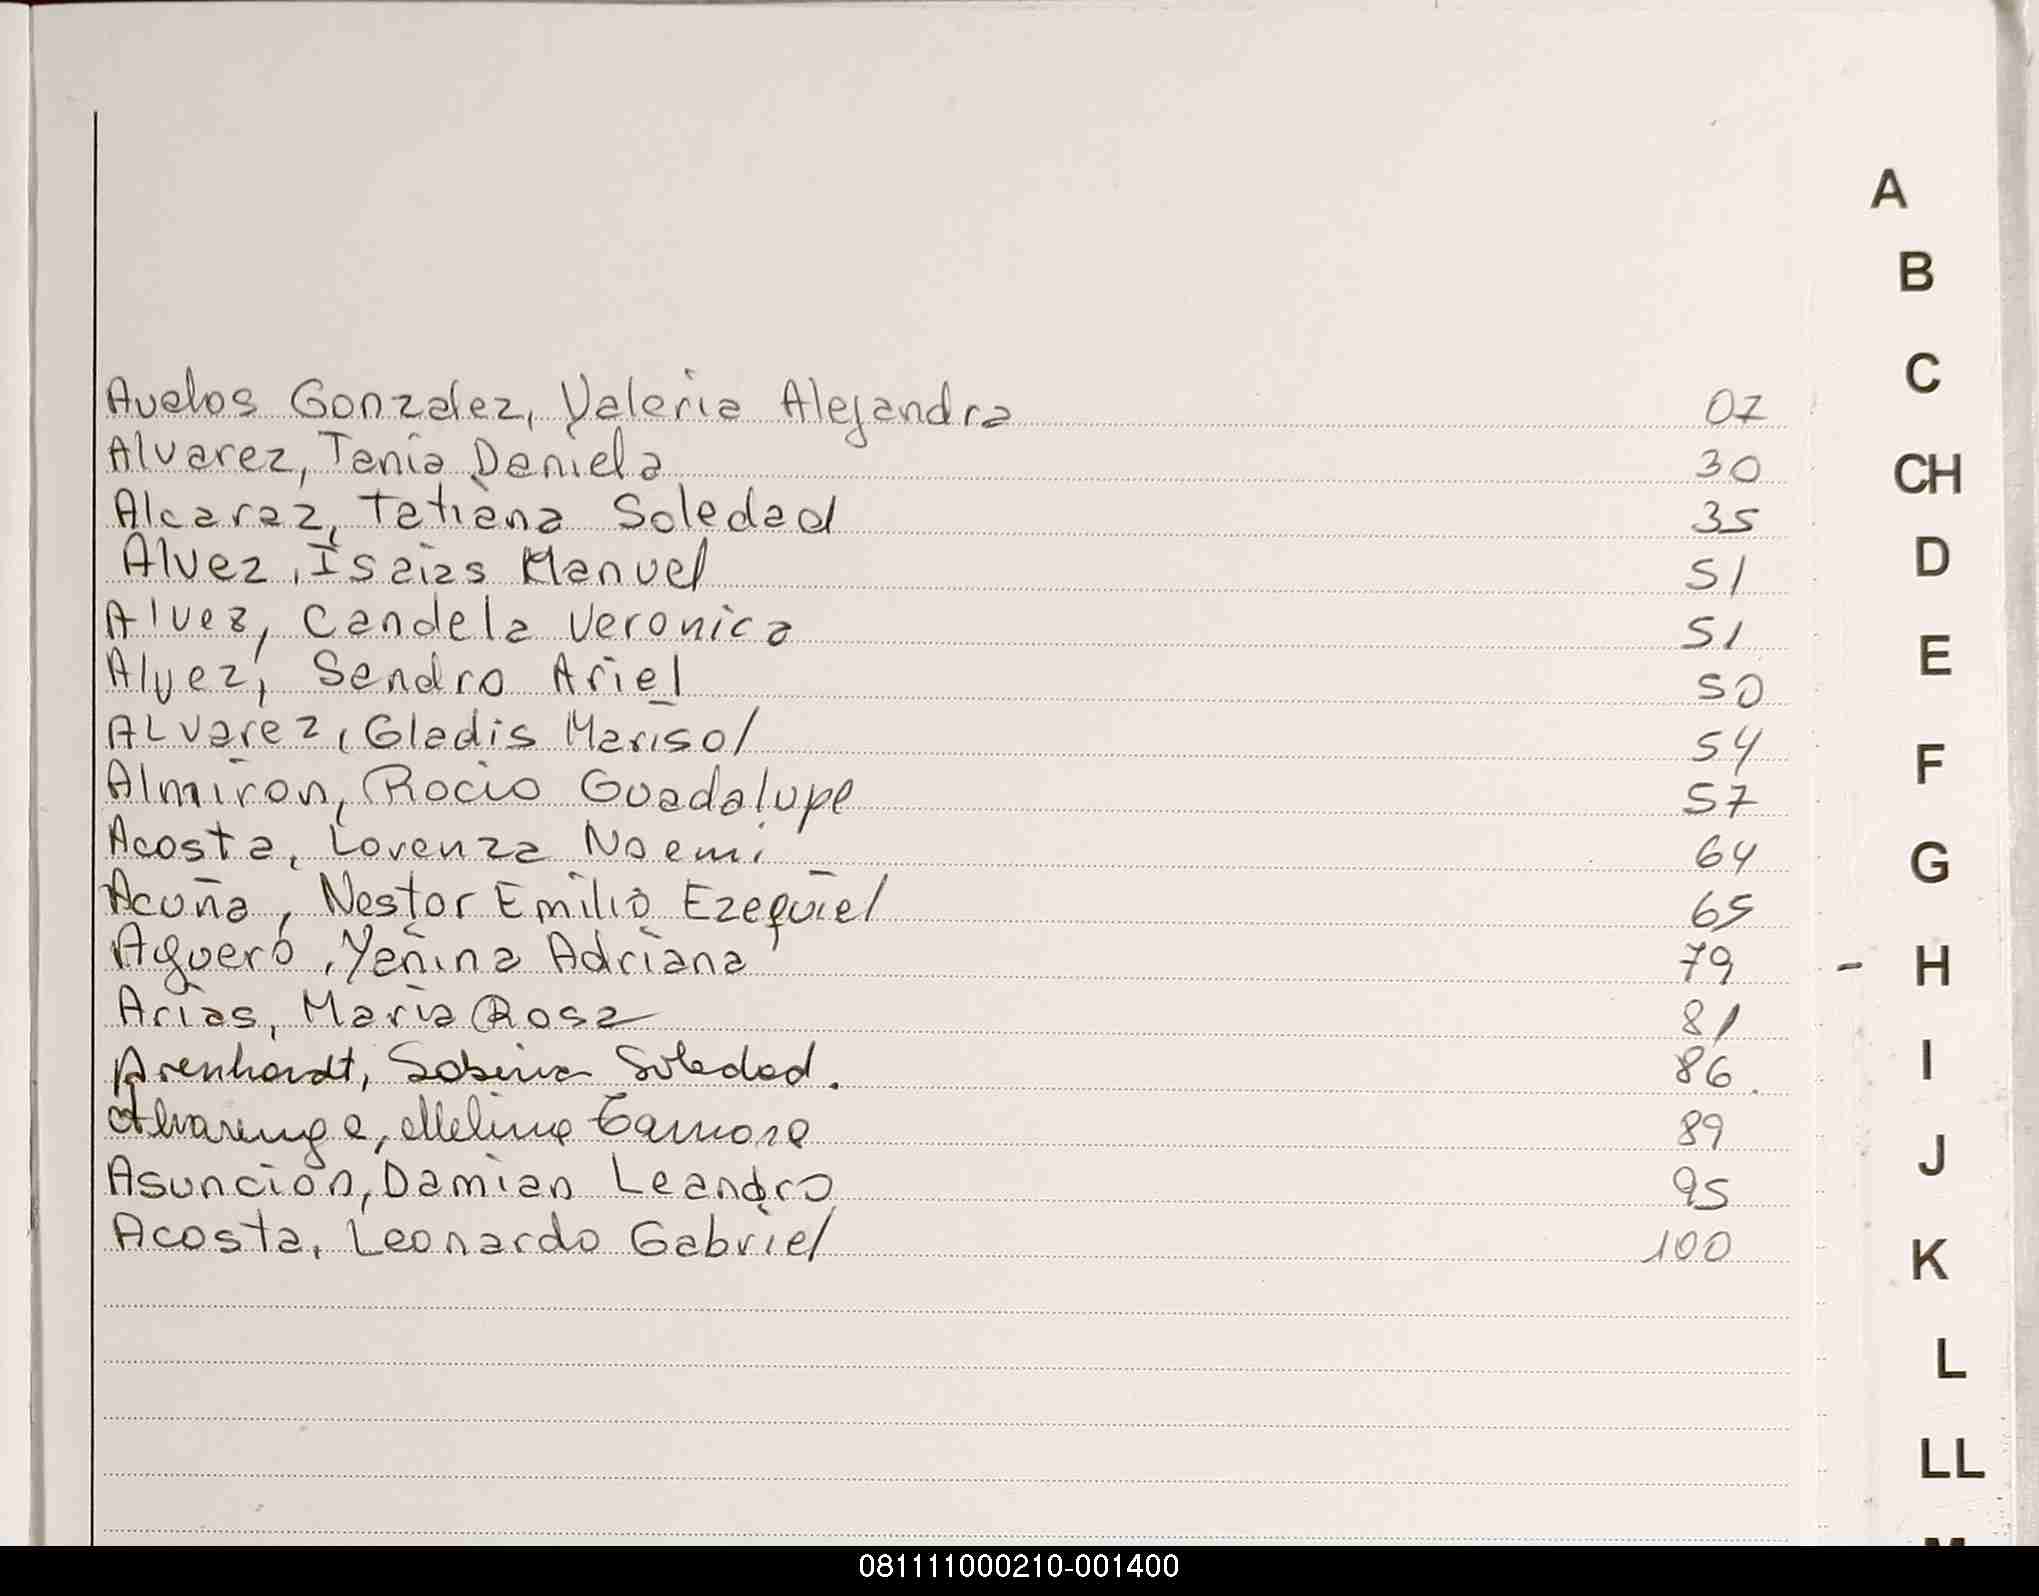 A
B
C
Avalos Gonzalez, Valeria Alejandra 07
Alvarez, Tania Daniela 30
CH
Alcaraz, Tatiana Soledad 35
D
Alvez, Isaias Manuel 51
Alvez, Candela Veronica 51
E
Alvez, Sandro Ariel 50
ALvarez, Gladis Marisol 54
F
Almiron, Rocio Guadalupe 57
Acosta, Lorenza Noemi 64
G
Acuña, Nestor Emilio Ezequiel 65
Aguero, Yanina Adriana 79
- H
Arias, Maria Rosa 81
I
Arenhardt, Sabina Soledad. 86.
Alvarenga, Melina Tamara 89
J
Asunción, Damian Leandro 95
Acosta, Leonardo Gabriel 100
K
L
LL
M
081111000210-001400